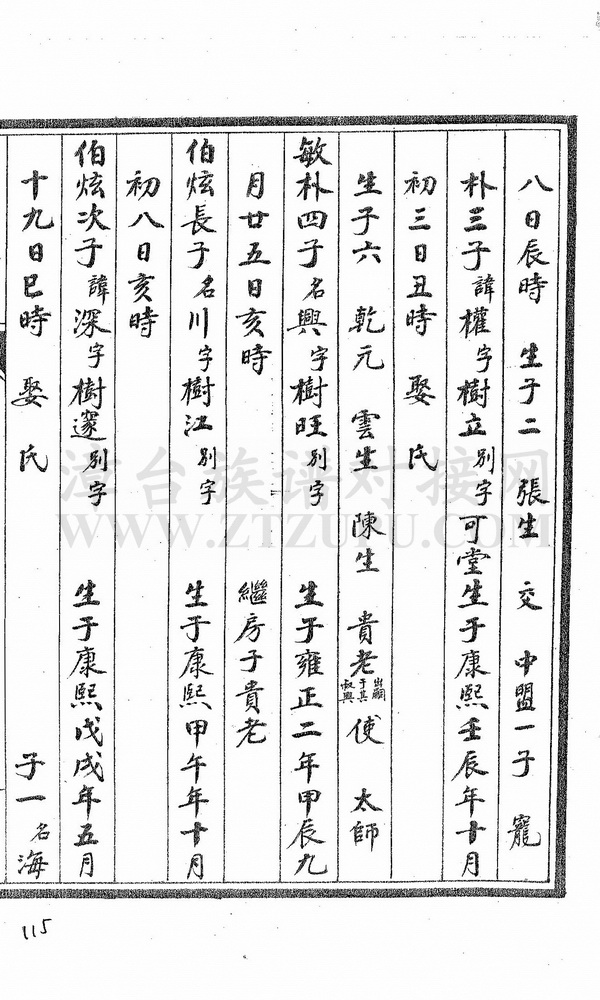 八日辰時 生子二 張生 交 中盟一子 寵
朴三子諱權字樹立別字可堂生于康熙壬辰年十月
初三日丑時 娶氏
生子六 乾元 雲生 陳生 貴老出嗣于其叔興 使 太師
敏朴四子名興字樹旺別字 生于雍正二年甲辰九
月廿五日亥時 繼房子貴老
伯炫長子名川字樹江別字 生于康熙甲午年十月
初八日亥時
伯炫次子諱深字樹邃別字 生于康熙戊戌年五月
十九日巳時 娶氏 子一名海
江台族谱对接网
WWW.ZTZUPU.COM
115